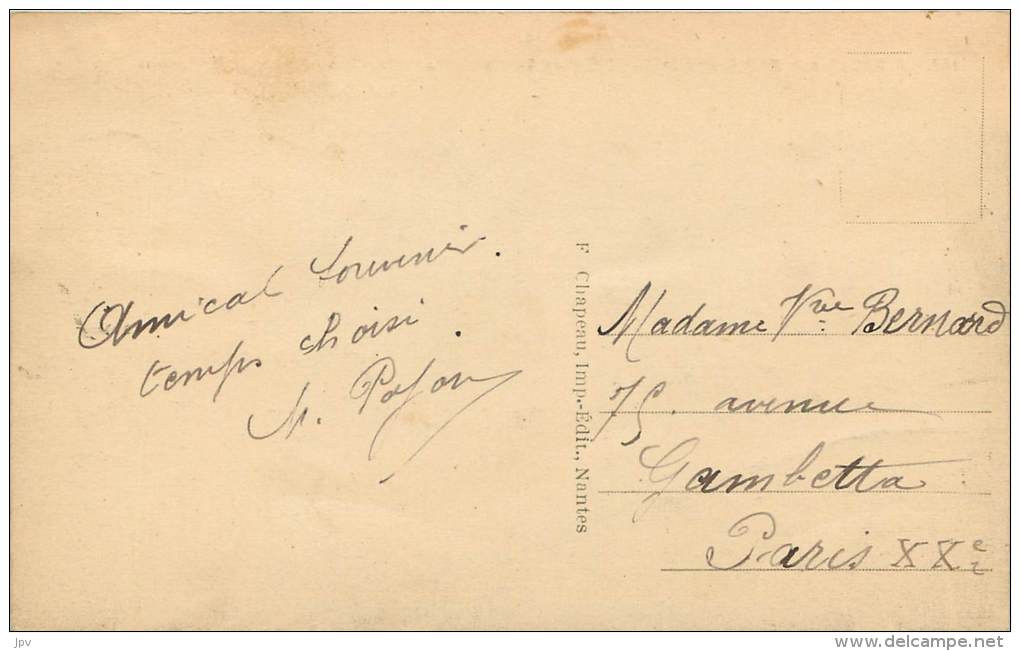 Amical souvenir.
temps choisi.
F Chapeau, Imp.-Édit., Nantes
Madame Vve Bernard
75. avenue
Gambetta
Paris XXe
jpv
www.delcampe.net